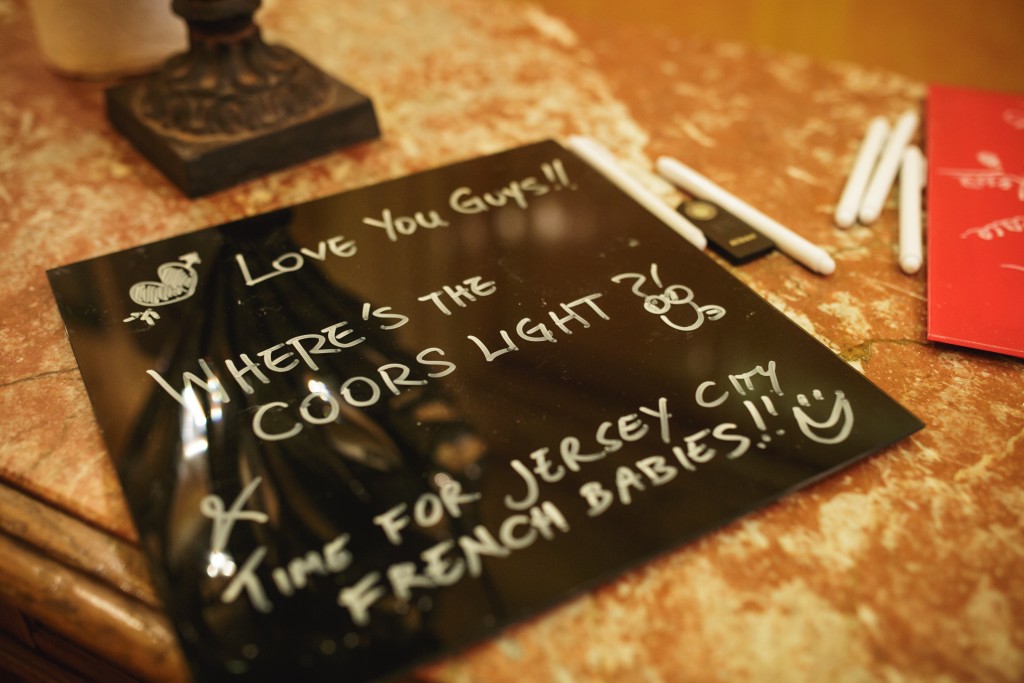 LOVE YOU GUYS!!
WHERE'S THE
COORS LIGHT ?!
&
TIME FOR JERSEY CITY
FRENCH BABIES!!